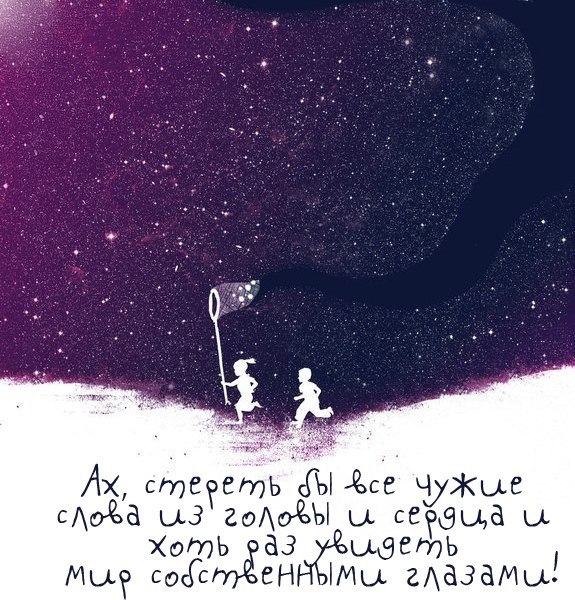 Ах, стереть бы все чужие
слова из головы и сердца и
хоть раз увидеть
мир собственными глазами!